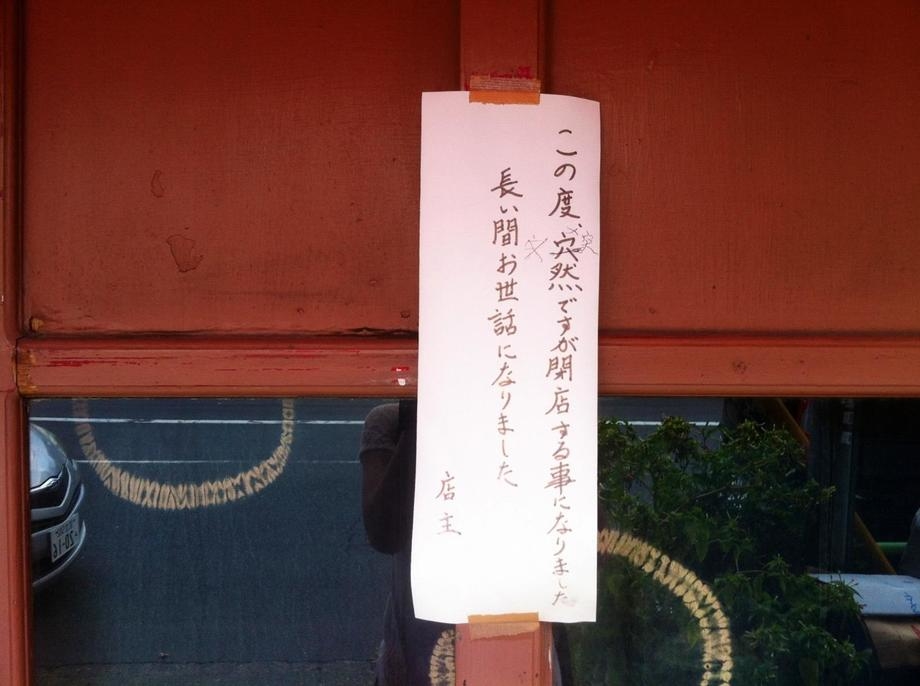 この度、突然ですが閉店する事になりました
長い間お世話になりました
店主